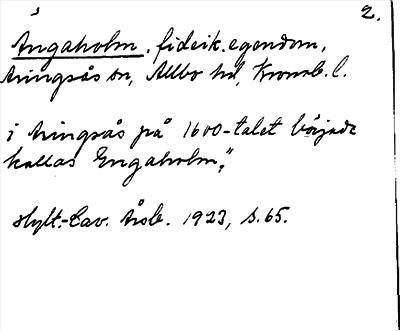 2.
Angaholm, fideik.egendom,
Aringsås sn, Allbo hd, Kronob. l.
i Aringsås på 1600-talet började
kallas Engaholm,"
Hylt.-Cav. Årsb. 1923, s. 65.